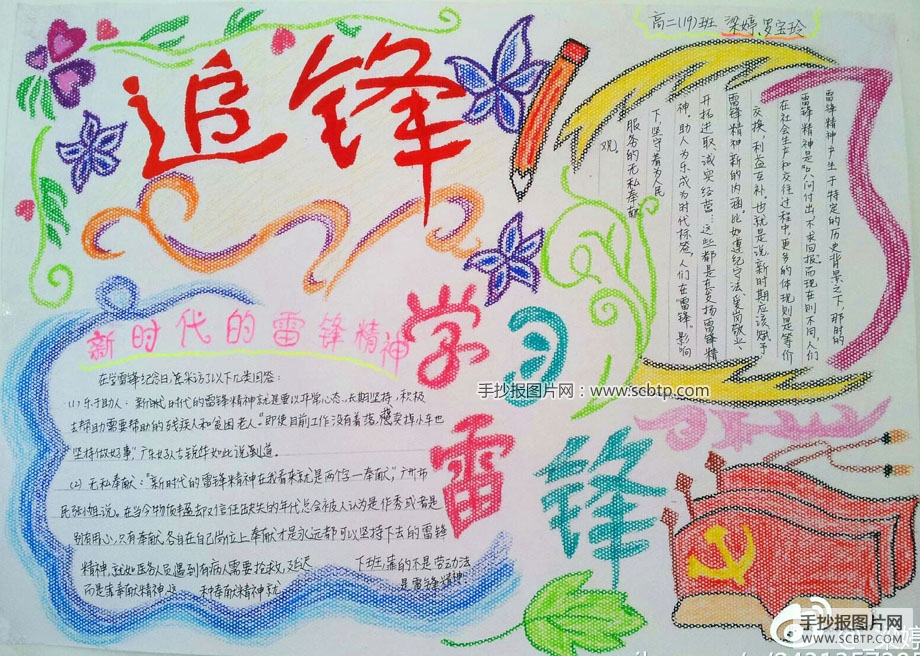 高二(19)班 梁婷、罗宝玲
追锋
雷锋精神产生于特定的历史背景之下,那时的
雷锋精神是"只问付出,不求回报",而现在则不同,人们
在社会生产和交往过程中,更多的体现则是等价
交换,利益互补,也就是说,新时期应该赋予
雷锋精神新的内涵。比如遵纪守法,爱岗敬业,
开拓进取,诚实经营:这些都是在发扬雷锋精
神。助人为乐成为时代标签,人们在雷锋。影响
下,坚守着为人民
服务的无私奉献
观。
学习
雷锋
新时代的雷锋精神
在学雷锋纪念日,采访了以下几类回答:
(1)乐于助人:新时代的雷锋精神就是要以平常心态,长期坚持,积极
去帮助需要帮助的残疾人和贫困老人。"即使目前工作没有着落,卖掉小车也
坚持做好事"广东好人古锐华如此说道。
(2)无私奉献:"新时代的雷锋精神在我看来就是两个字一奉献,"广州市
民张小姐说。在当今物质丰盛却又信任缺失的年代总会被人认为是作秀或者是
别有用心,只有奉献,各自在自己岗位上奉献才是永远都可以坚持下去的雷锋
精神,就如医务人员遇到有病人需要抢救,延迟 下班,靠的不是劳动法
而是靠奉献精神,这 种奉献精神就 是雷锋精神
手抄报图片网:www.scbtp.com
手抄报图片网
WWW.SCBTP.COM